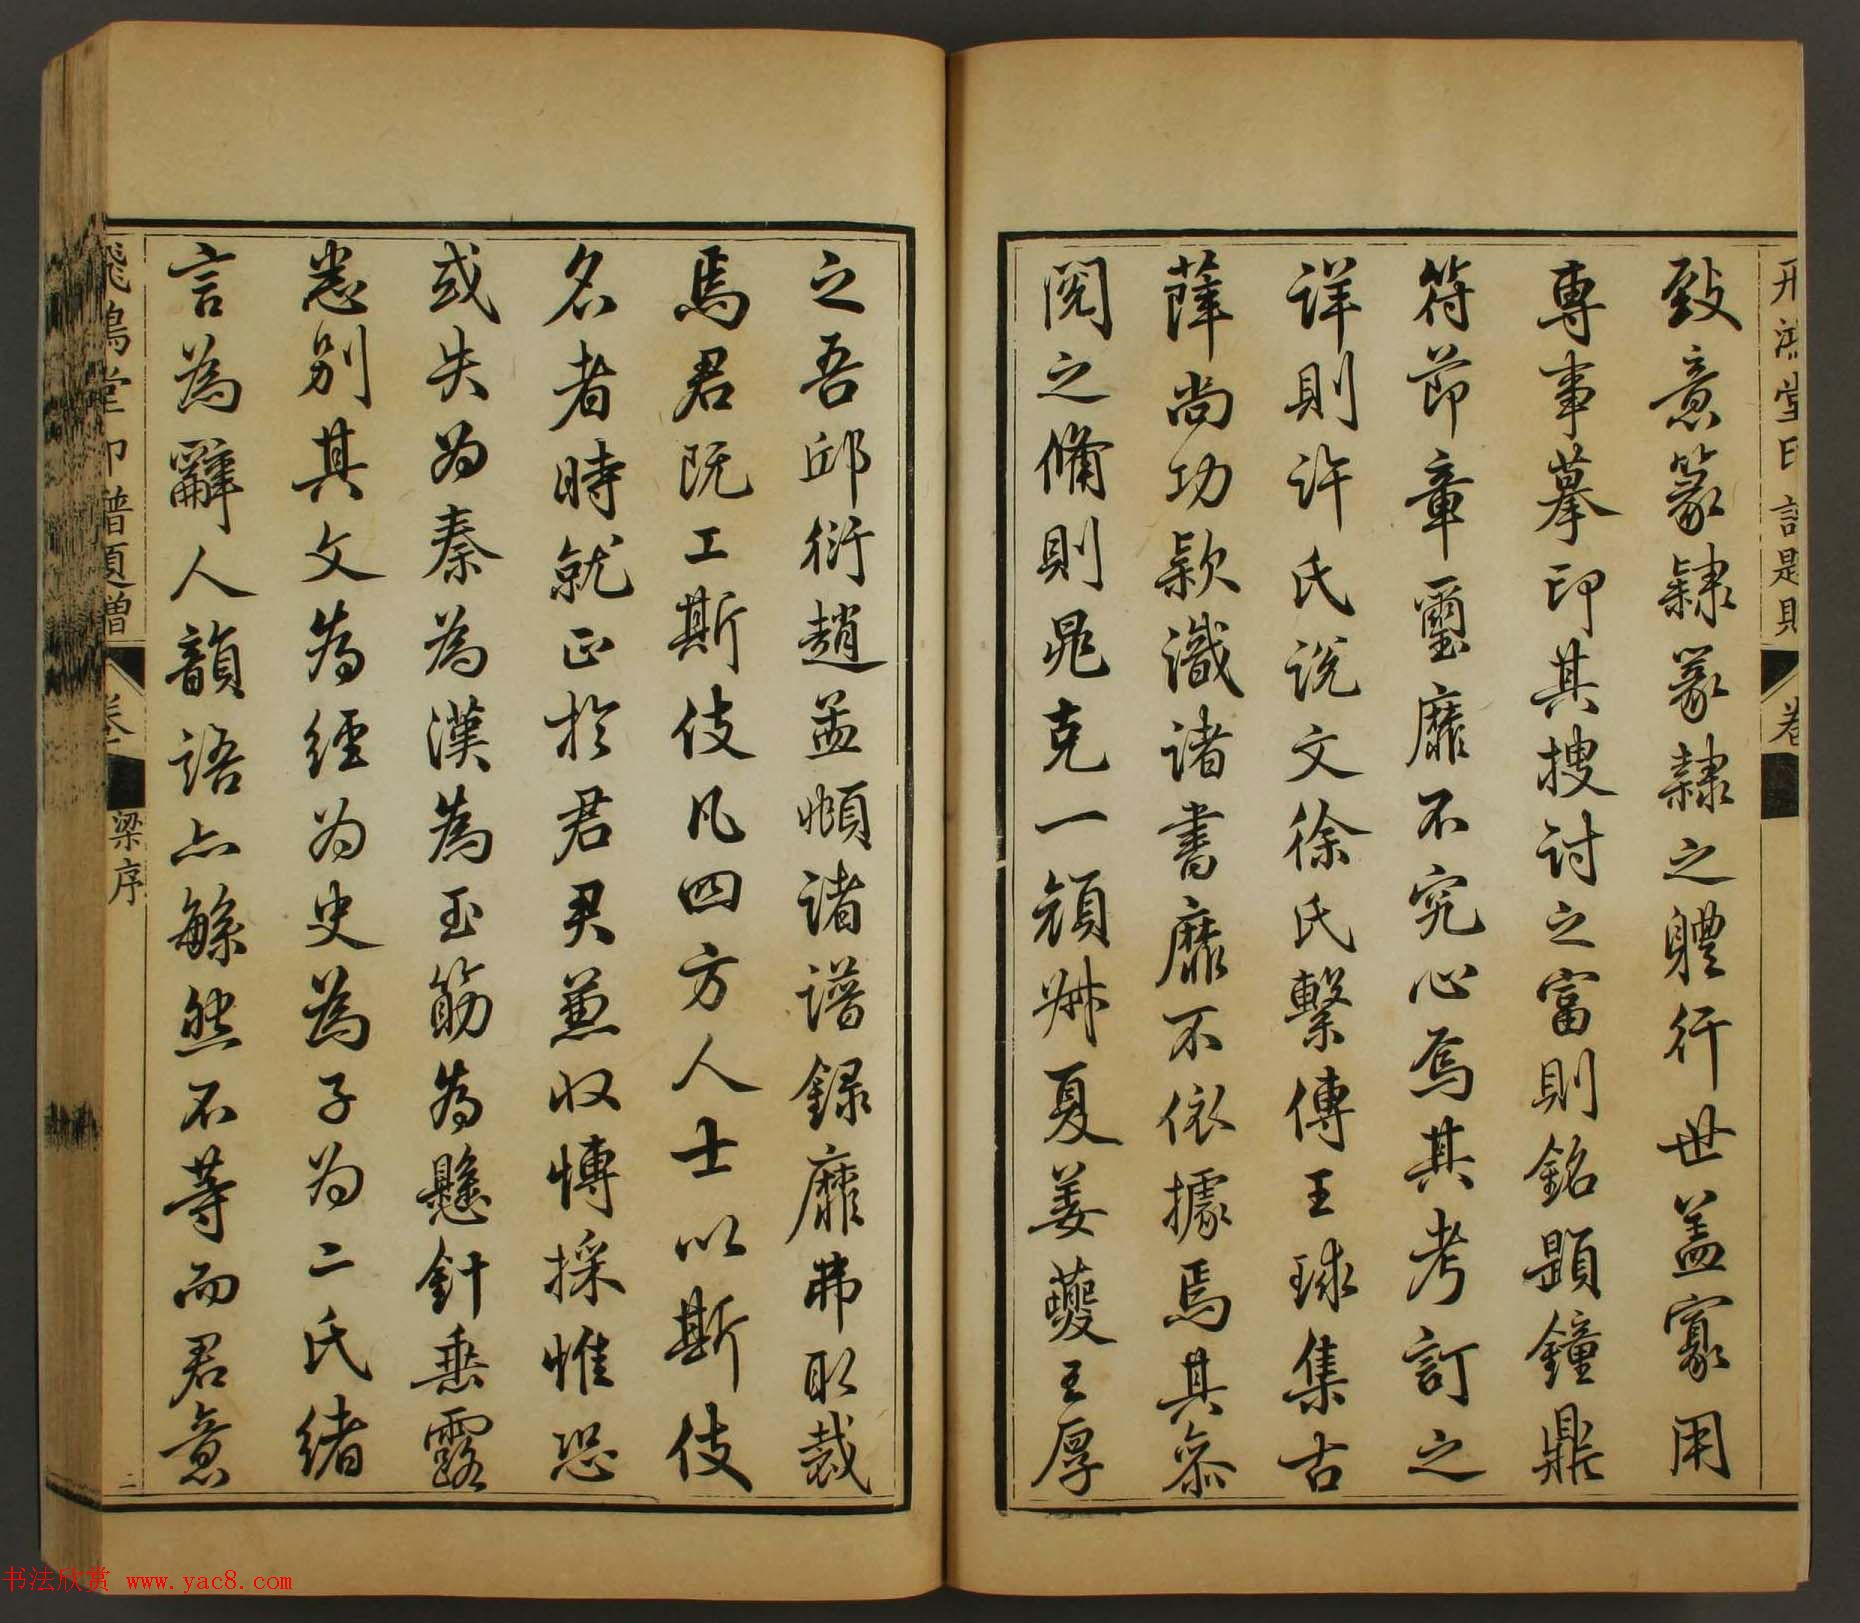 致意篆隸篆隸之體行世蓋寡用
專事摹印其搜討之富則銘題鐘鼎
符節章璽靡不究心焉其考訂之
詳則許氏說文徐氏繫傳王球集古
薛尚功款識諸書靡不依據焉其參
閱之備則晁克一顏叔夏姜夔王厚
之吾邱衍趙孟頫諸譜錄靡弗取裁
焉君既工斯伎凡四方人士以斯伎
名者時就正於君君兼收博採惟恐
或失為秦為漢為玉筯為懸針垂露
悉別其文為經為史為子為二氏緒
言為辭人韻語亦緐然不等而君意
飛鴻堂印譜 卷 梁序 二
书法欣赏 www.yac8.com